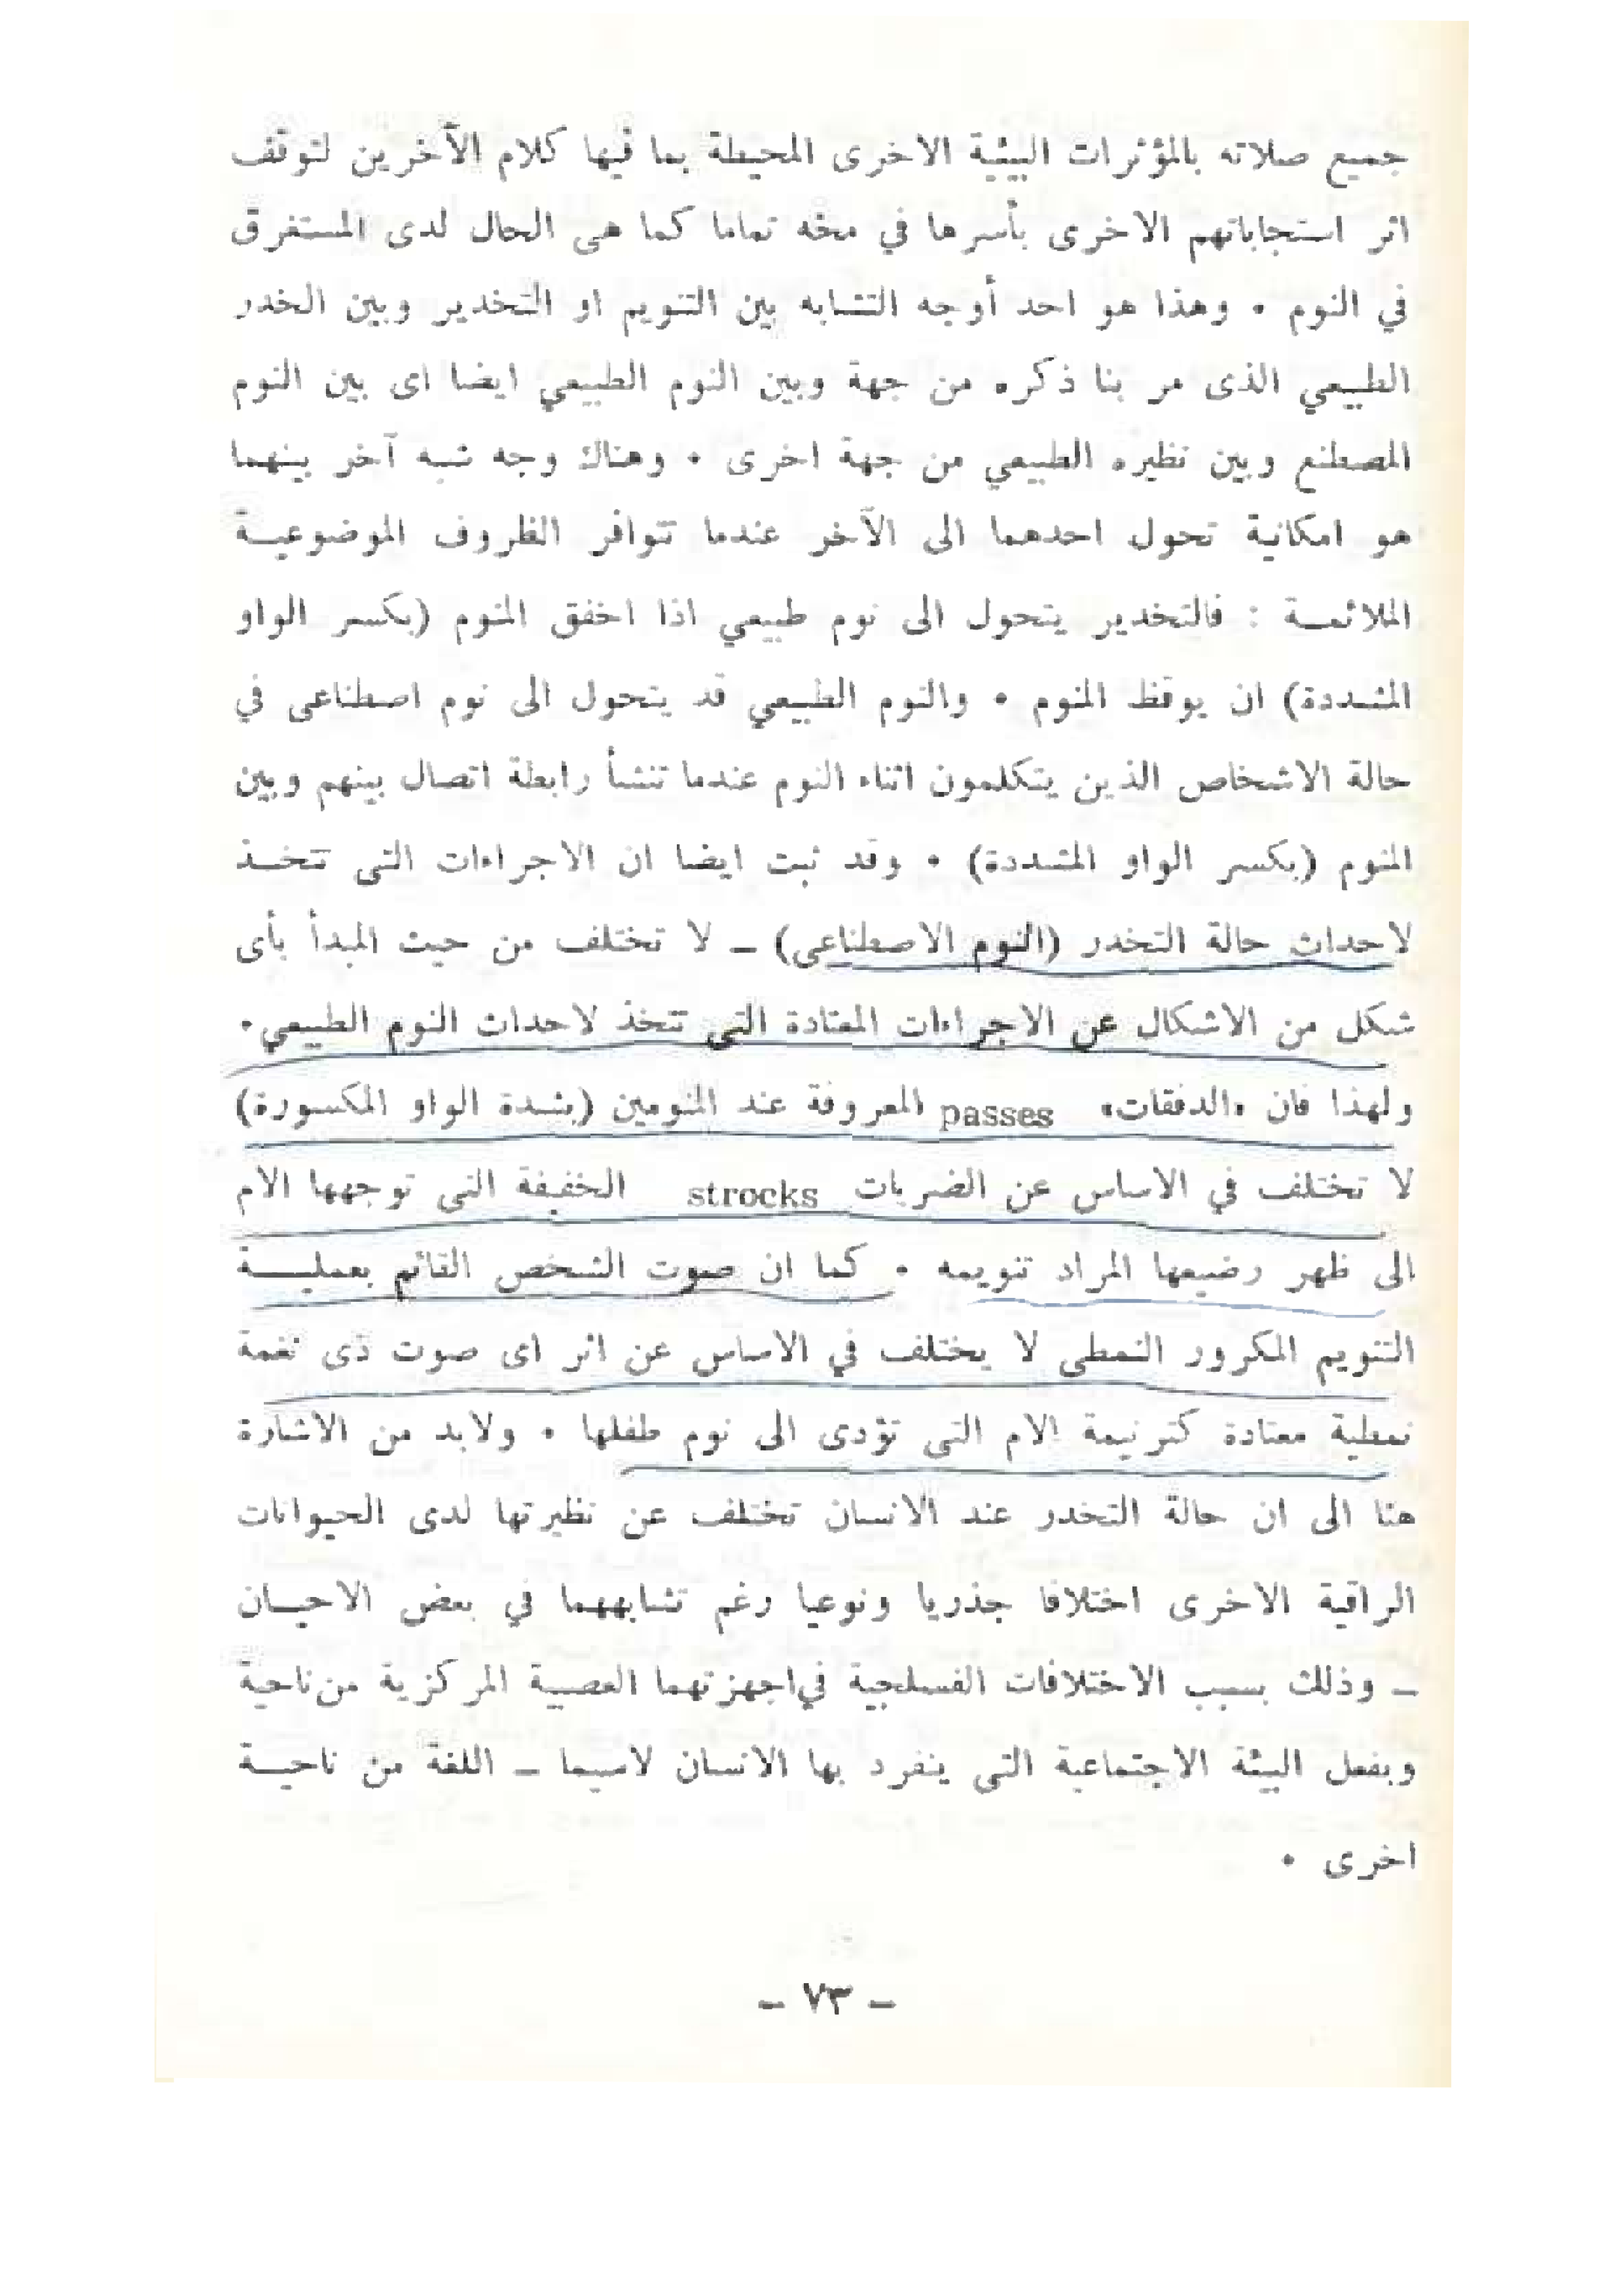 جميع صلاته بالمؤثرات البيئية الاخرى المحيطة بما فيها كلام الآخرين لتوقف
اثر استجاباتهم الاخرى بأسرها في مخه تماما كما هى الحال لدى المستغرق
في النوم ٠ وهذا هو احد أوجه التشابه بين التنويم او التخدير وبين الخدر
الطبيعي الذى مر بنا ذكره من جهة وبين النوم الطبيعي ايضا اى بين النوم
المصطنع وبين نظيره الطبيعي من جهة اخرى ٠ وهناك وجه شبه آخر بينهما
هو امكانية تحول احدهما الى الآخر عندما تتوافر الظروف الموضوعيــة
الملائمــة : فالتخدير يتحول الى نوم طبيعي اذا اخفق المنوم (بكسر الواو
المشددة) ان يوقظ المنوم ٠ والنوم الطبيعي قد يتحول الى نوم اصطناعى في
حالة الاشخاص الذين يتكلمون اثناء النوم عندما تنشأ رابطة اتصال بينهم وبين
المنوم (بكسر الواو المشددة) ٠ وقد ثبت ايضا ان الاجراءات التى تتخــذ
لاحداث حالة التخدر (النوم الاصطناعى) ـ لا تختلف من حيث المبدأ بأى
شكل من الاشكال عن الاجراءات المعتادة التى تتخذ لاحداث النوم الطبيعي٠
ولهذا فان «الدفقات» passes المعروفة عند المنومين (بشدة الواو المكسورة)
لا تختلف في الاساس عن الضربات strocks الخفيفة التى توجهها الام
الى ظهر رضيعها المراد تنويمه ٠ كما ان صوت الشخص القائم بعمليــــة
التنويم المكرور النمطى لا يختلف في الاساس عن اثر اى صوت ذى نغمة
نمطية معتادة كترنيمة الام التى تؤدى الى نوم طفلها ٠ ولابد من الاشارة
هنا الى ان حالة التخدر عند الانسان تختلف عن نظيرتها لدى الحيوانات
الراقية الاخرى اختلافا جذريا ونوعيا رغم تشابههما في بعض الاحيــان
ـ وذلك بسبب الاختلافات الفسلجية في اجهزتهما العصبية المركزية من ناحية
وبفعل البيئة الاجتماعية التى ينفرد بها الانسان لاسيما ـ اللغة من ناحيــة
اخرى ٠
ـ ٧٣ ـ